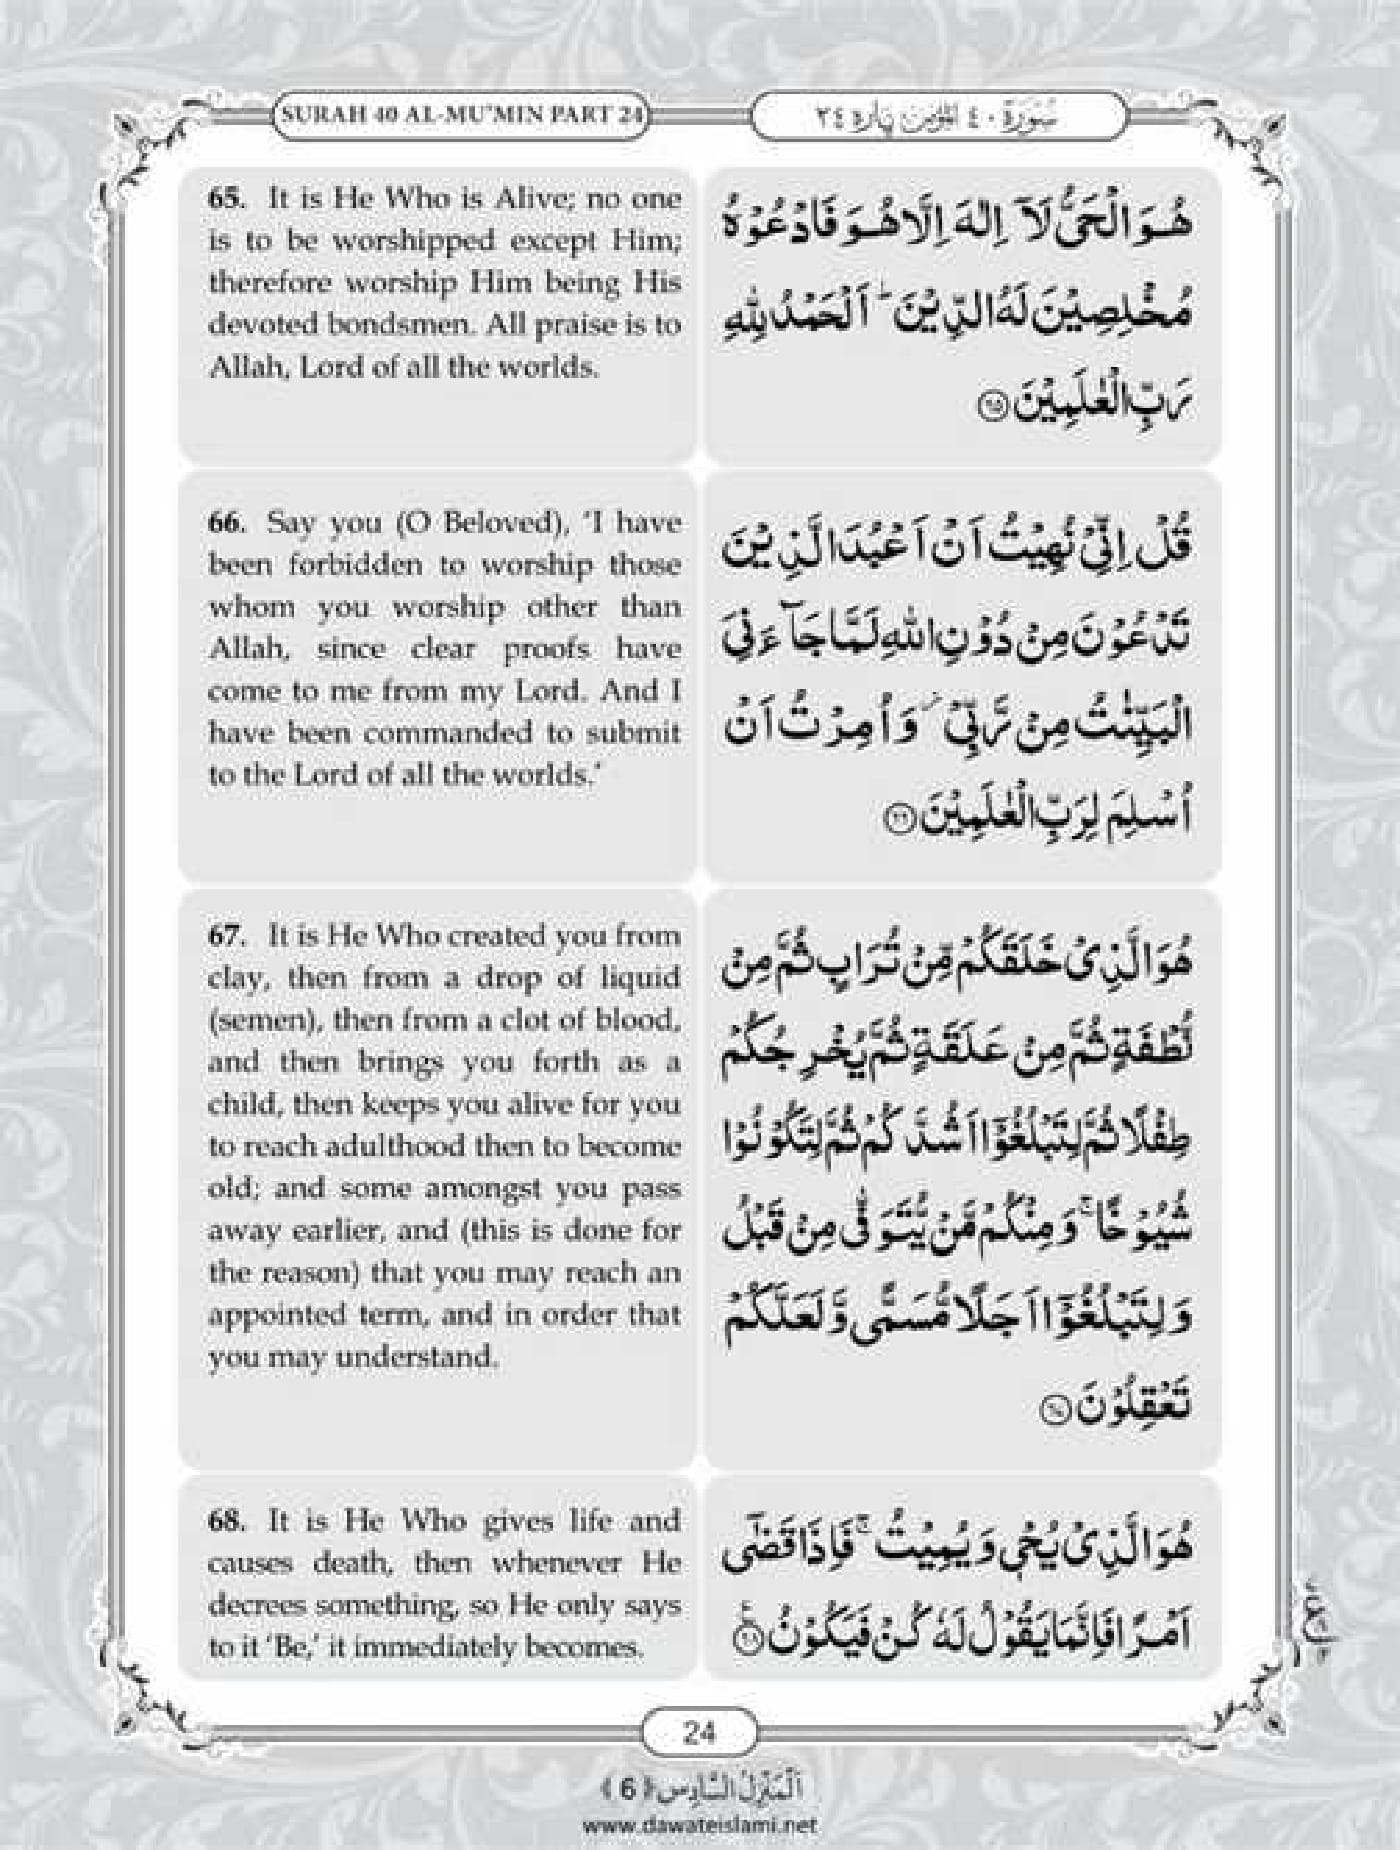 SURAH 40 AL-MU'MIN PART 24
سُوْرَةٌ ٤٠ اَلْمُؤْمِن پاره ٢٤
65. It is He Who is Alive; no one
is to be worshipped except Him;
therefore worship Him being His
devoted bondsmen. All praise is to
Allah, Lord of all the worlds.
هُوَ الْحَیُّ لَاۤ اِلٰهَ اِلَّا هُوَ فَادْعُوْهُ
مُخْلِصِیْنَ لَهُ الدِّیْنَ ؕ اَلْحَمْدُ لِلّٰهِ
رَبِّ الْعٰلَمِیْنَ ﴿۶۵﴾
66. Say you (O Beloved), ‘I have
been forbidden to worship those
whom you worship other than
Allah, since clear proofs have
come to me from my Lord. And I
have been commanded to submit
to the Lord of all the worlds.’
قُلْ اِنِّیْ نُهِیْتُ اَنْ اَعْبُدَ الَّذِیْنَ
تَدْعُوْنَ مِنْ دُوْنِ اللّٰهِ لَمَّا جَآءَنِیَ
الْبَیِّنٰتُ مِنْ رَّبِّیْ ۫ وَ اُمِرْتُ اَنْ
اُسْلِمَ لِرَبِّ الْعٰلَمِیْنَ ﴿۶۶﴾
67. It is He Who created you from
clay, then from a drop of liquid
(semen), then from a clot of blood,
and then brings you forth as a
child, then keeps you alive for you
to reach adulthood then to become
old; and some amongst you pass
away earlier, and (this is done for
the reason) that you may reach an
appointed term, and in order that
you may understand.
هُوَ الَّذِیْ خَلَقَكُمْ مِّنْ تُرَابٍ ثُمَّ مِنْ
نُّطْفَةٍ ثُمَّ مِنْ عَلَقَةٍ ثُمَّ یُخْرِجُكُمْ
طِفْلًا ثُمَّ لِتَبْلُغُوْۤا اَشُدَّكُمْ ثُمَّ لِتَكُوْنُوْا
شُیُوْخًا ۚ وَ مِنْكُمْ مَّنْ یُّتَوَفّٰی مِنْ قَبْلُ
وَ لِتَبْلُغُوْۤا اَجَلًا مُّسَمًّی وَّ لَعَلَّكُمْ
تَعْقِلُوْنَ ﴿۶۷﴾
68. It is He Who gives life and
causes death, then whenever He
decrees something, so He only says
to it ‘Be,’ it immediately becomes.
هُوَ الَّذِیْ یُحْیٖ وَ یُمِیْتُ ۚ فَاِذَا قَضٰۤی
اَمْرًا فَاِنَّمَا یَقُوْلُ لَهٗ كُنْ فَیَكُوْنُ ﴿۶۸﴾
24
اَلْمَنْزِلُ السَّادِس ﴿6﴾
www.dawateislami.net